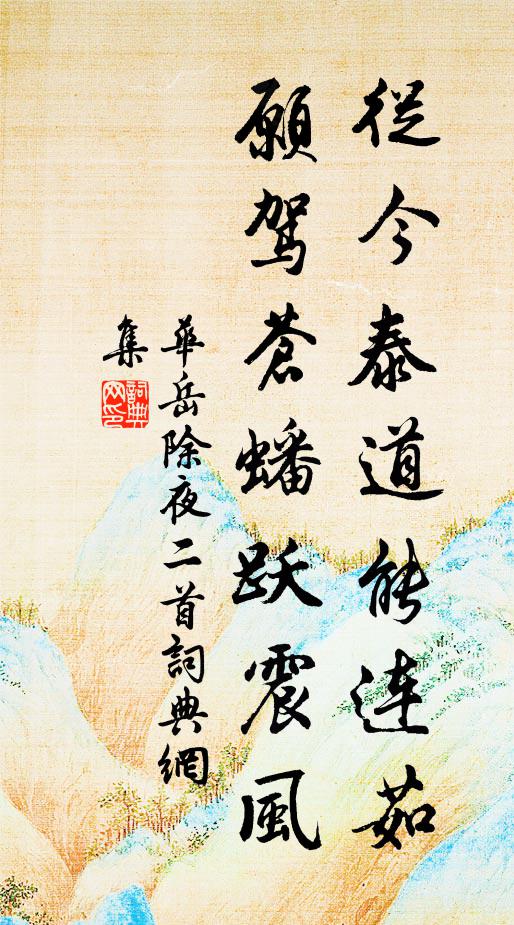 從今泰道能連茹
願駕蒼蟠跃震風
華岳除夜二首詞典網
集
詞典
网印